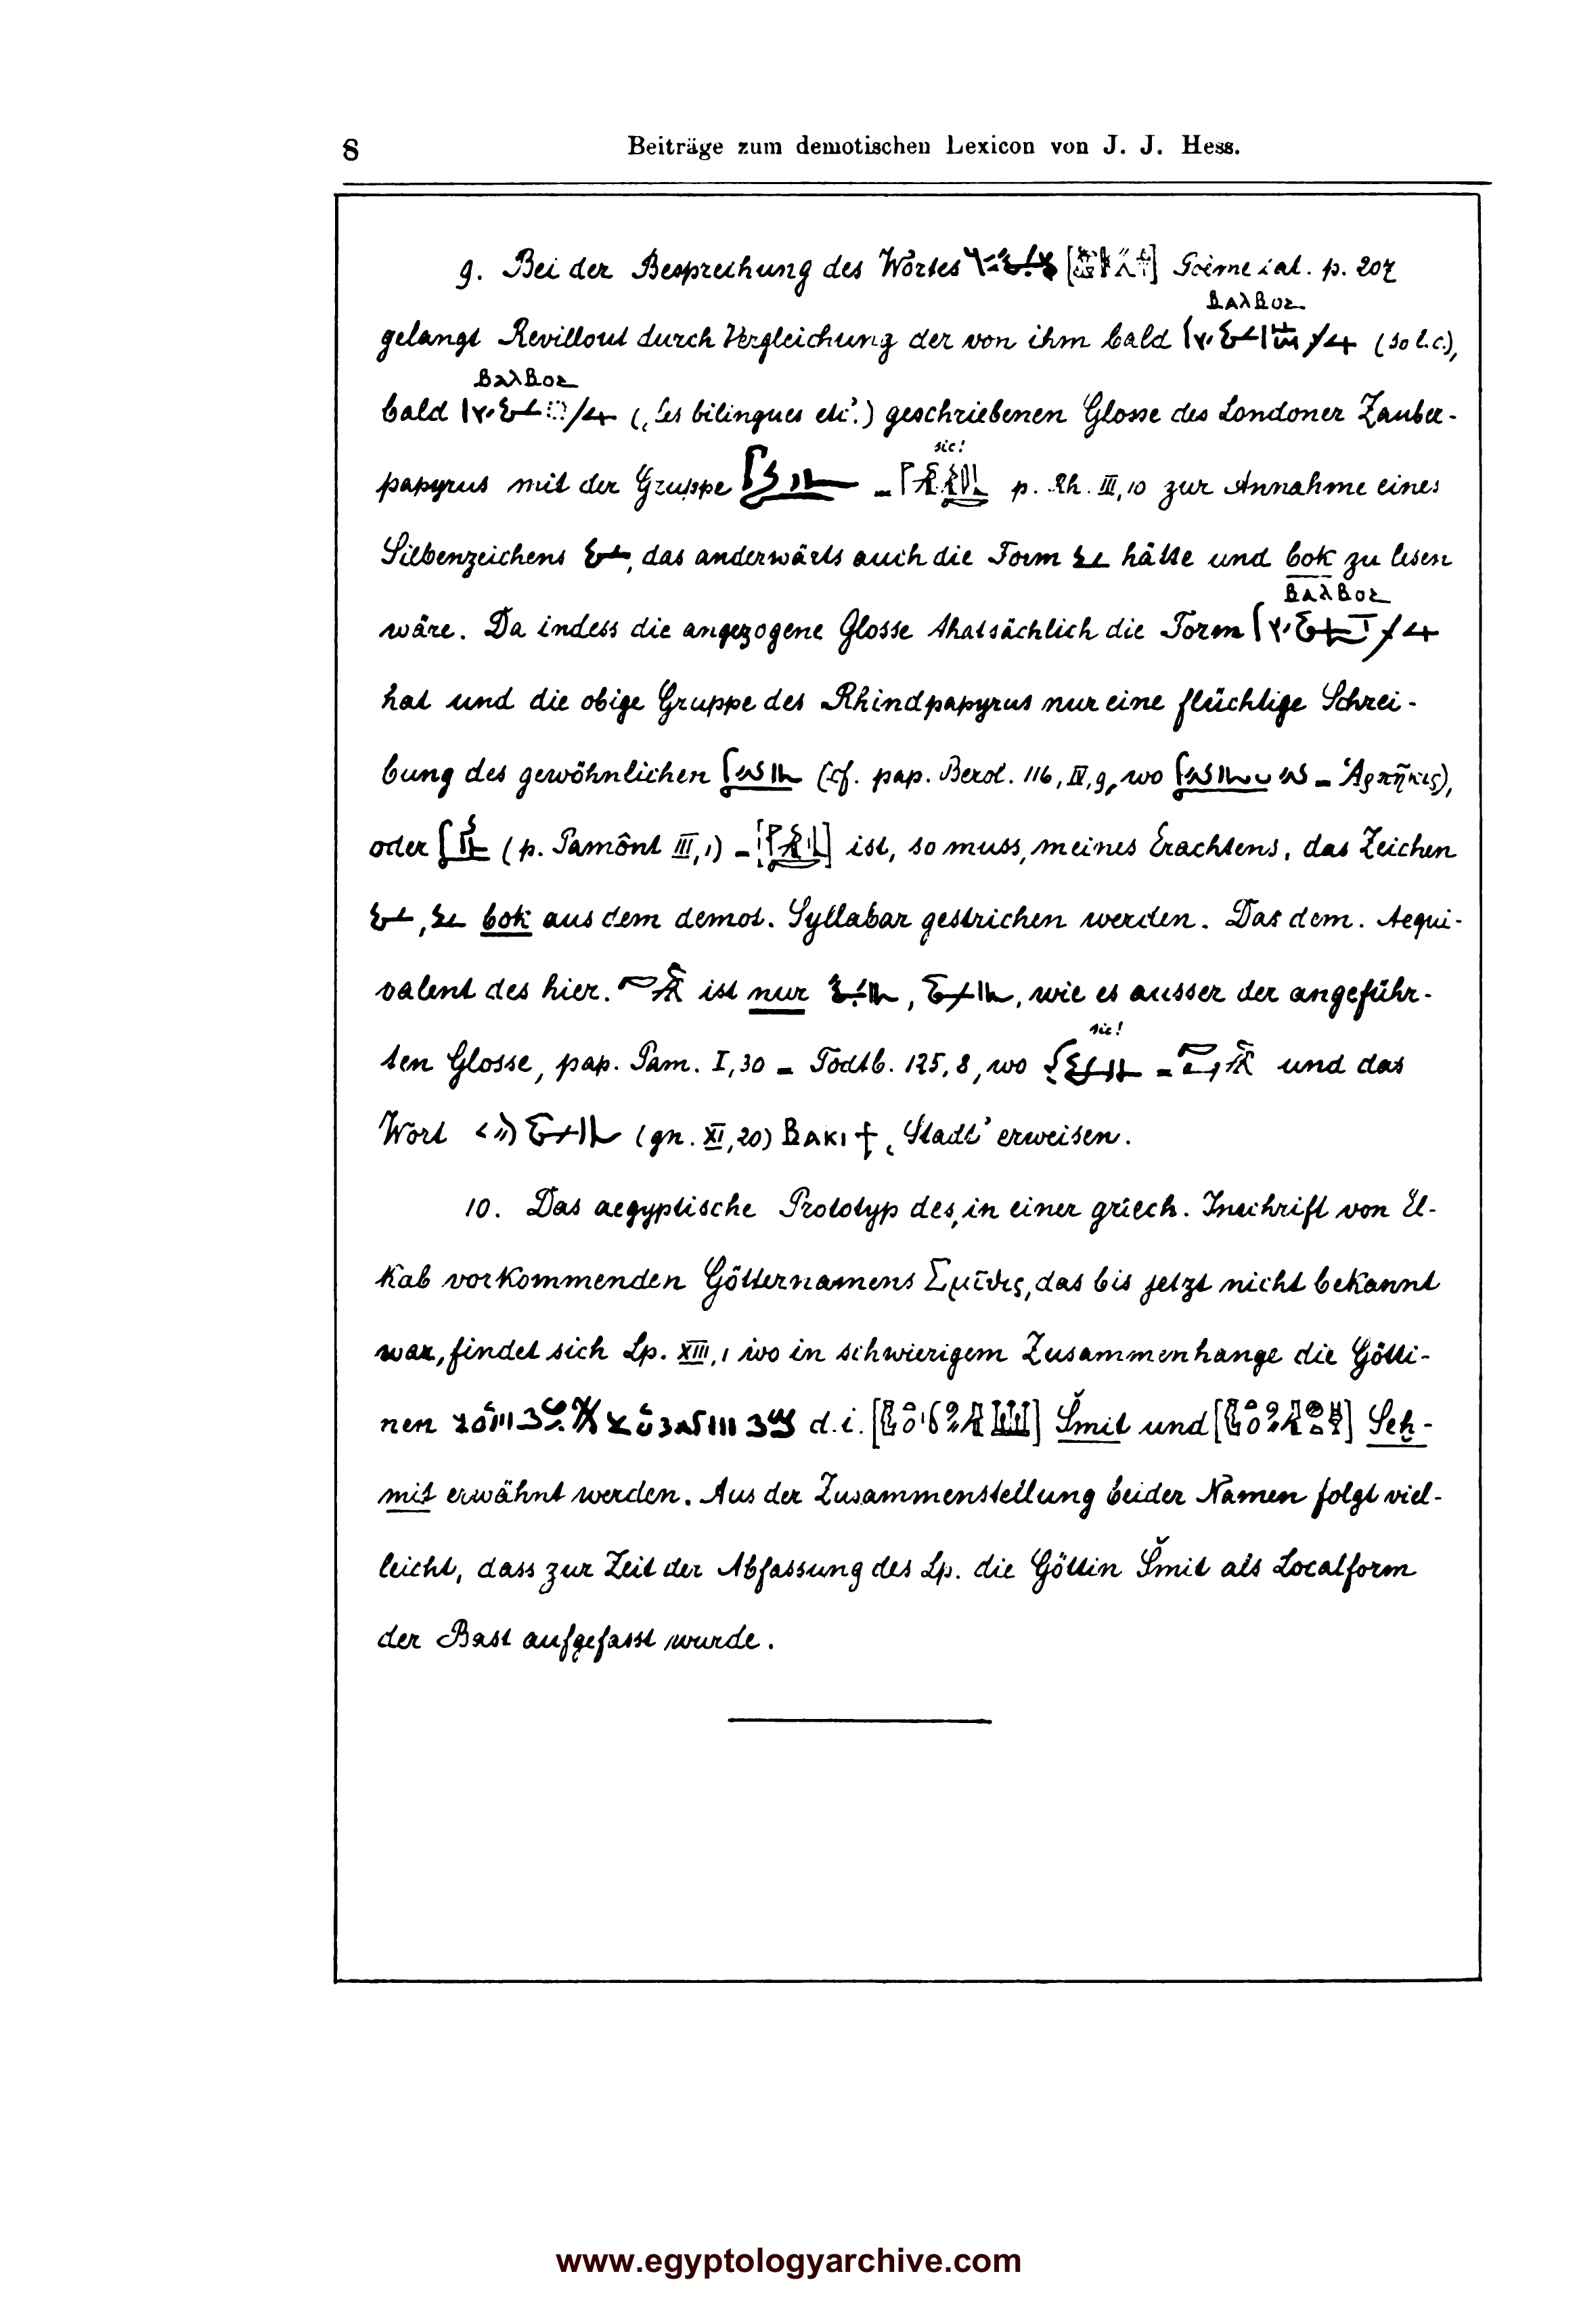 8 Beiträge zum demotischen Lexicon von J. J. Hess.
9. Bei der Besprechung des Wortes [ ] p. 207
ⲂⲀⲖⲂⲞⲤ
gelangt Revillout durch Vergleichung der von ihm bald (so l.c.),
ⲂⲀⲖⲂⲞⲤ
bald (‚Les bilingues etc.’) geschriebenen Glosse des Londoner Zauber-
sic!
papyrus mit der Gruppe = p. Rh. III, 10 zur Annahme eines
Silbenzeichens , das anderwärts auch die Form hätte und bok zu lesen
ⲂⲀⲖⲂⲞⲤ
wäre. Da indess die angezogene Glosse thatsächlich die Form
hat und die obige Gruppe des Rhindpapyrus nur eine flüchtige Schrei-
bung des gewöhnlichen (cf. pap. Berol. 116, IV, 9, wo = Ἁρπῆκις),
oder (p. Pamônt III, 1) = [ ] ist, so muss, meines Erachtens, das Zeichen
, bok aus dem demot. Syllabar gestrichen werden. Das dem. Aequi-
valent des hier. ist nur , , wie es ausser der angeführ-
sic!
ten Glosse, pap. Pam. I, 30 = Todtb. 125, 8, wo = und das
Wort (gn. XI, 20) ⲂⲀⲔⲒ †, ‚Stadt’ erweisen.
10. Das aegyptische Prototyp des, in einer griech. Inschrift von El-
Kab vorkommenden Götternamens Σμῖθις, das bis jetzt nicht bekannt
war, findet sich Lp. XIII, 1 wo in schwierigem Zusammenhange die Götti-
nen d.i. [ ] Šmit und [ ] Seḫ-
mit erwähnt werden. Aus der Zusammenstellung beider Namen folgt viel-
leicht, dass zur Zeit der Abfassung des Lp. die Göttin Šmit als Localform
der Bast aufgefasst wurde.
www.egyptologyarchive.com